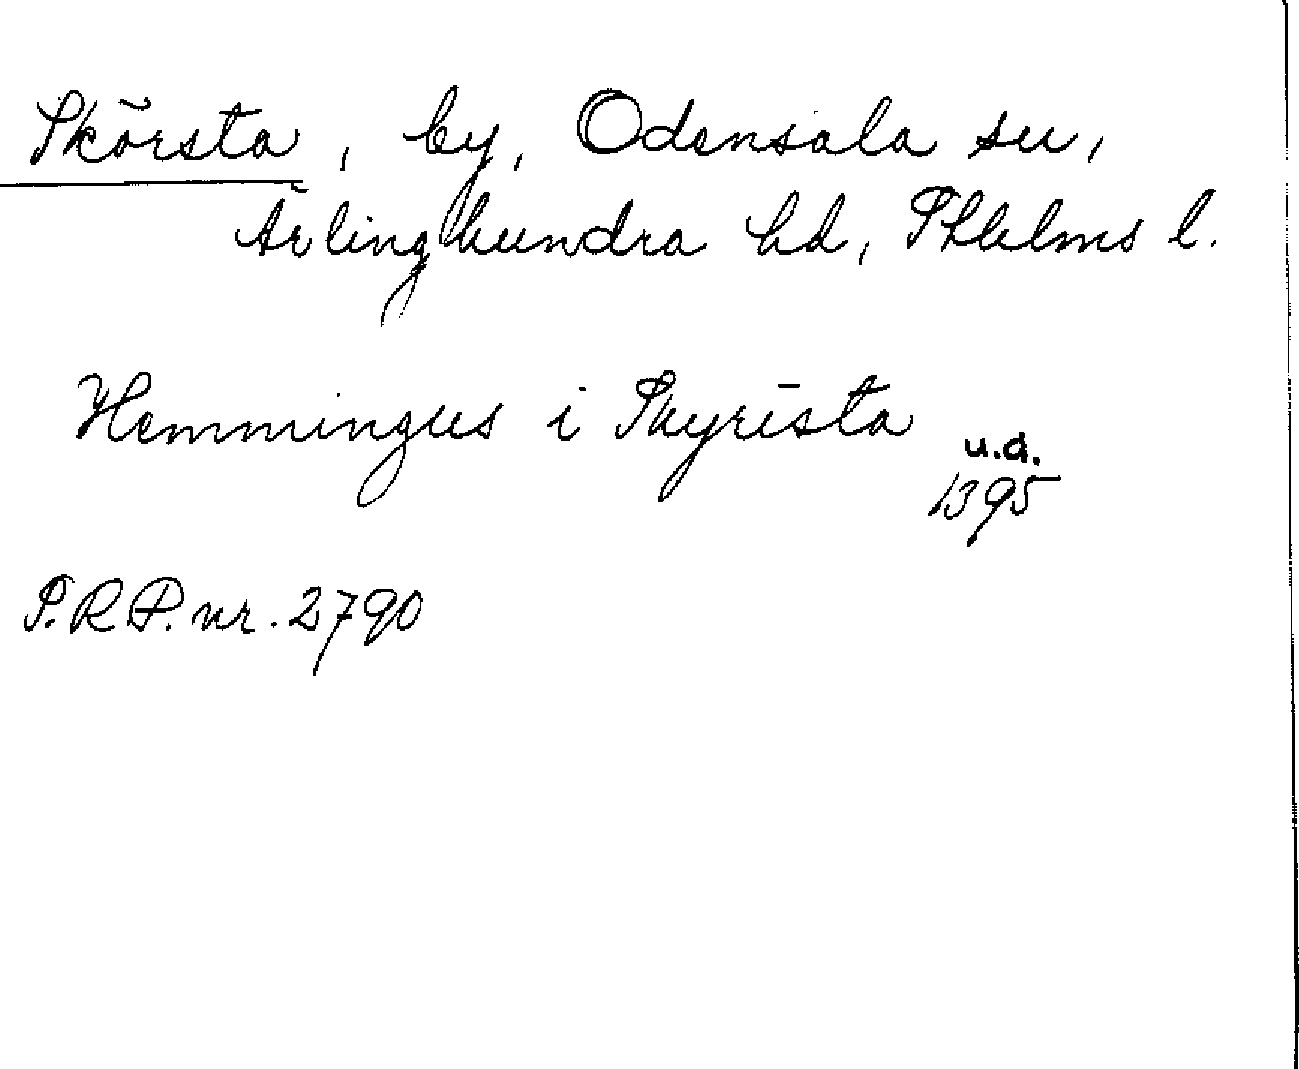 Skörsta, by, Odensala sn,
Ärlinghundra hd, Sthlms l.
Hemmingus i Skyrista
u.d.
1395
S.R.P. nr. 2790